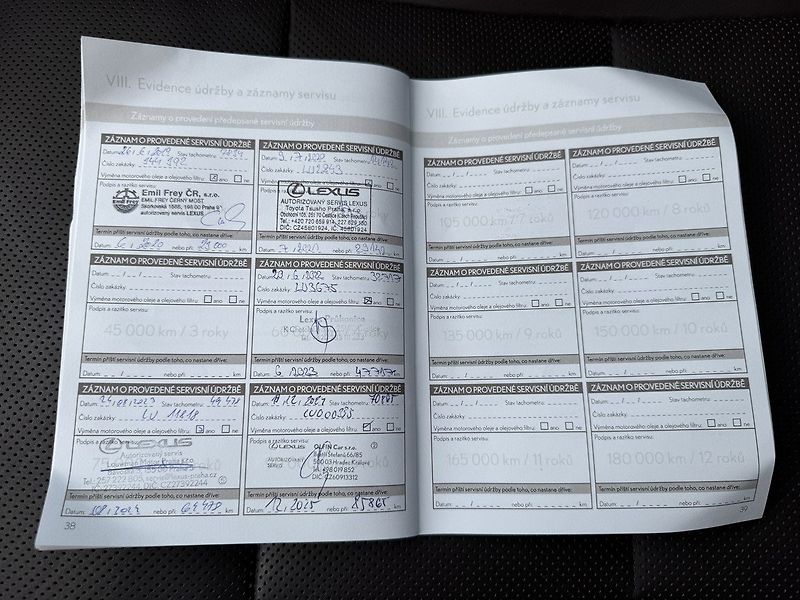 VIII. Evidence údržby a záznamy servisu
Záznamy o provedení předepsané servisní údržby
ZÁZNAM O PROVEDENÉ SERVISNÍ ÚDRŽBĚ
Datum: Stav tachometru:
Číslo zakázky:
Výměna motorového oleje a olejového filtru: ano ne
Podpis a razítko servisu:
Emil Frey ČR, s.r.o.
EMIL FREY ČERNÝ MOST
autorizovaný servis LEXUS
Termín příští servisní údržby podle toho, co nastane dříve:
Datum: 6/2020 nebo při: km
ZÁZNAM O PROVEDENÉ SERVISNÍ ÚDRŽBĚ
Datum: Stav tachometru:
Číslo zakázky:
Výměna motorového oleje a olejového filtru: ano ne
LEXUS
AUTORIZOVANÝ SERVIS LEXUS
Toyota Tsusho Praha
Tel.: +420
DIČ: CZ45801924, IČ: 45801924
Termín příští servisní údržby podle toho, co nastane dříve:
Datum: nebo při: km
ZÁZNAM O PROVEDENÉ SERVISNÍ ÚDRŽBĚ
Datum: Stav tachometru: km
Číslo zakázky:
Výměna motorového oleje a olejového filtru: ano ne
Podpis a razítko servisu:
45 000 km / 3 roky
Termín příští servisní údržby podle toho, co nastane dříve:
Datum: nebo při: km
ZÁZNAM O PROVEDENÉ SERVISNÍ ÚDRŽBĚ
Datum: 23.6.2022 Stav tachometru:
Číslo zakázky: LU3675
Výměna motorového oleje a olejového filtru: ano ne
Podpis a razítko servisu:
Termín příští servisní údržby podle toho, co nastane dříve:
Datum: 6.2023 nebo při: km
ZÁZNAM O PROVEDENÉ SERVISNÍ ÚDRŽBĚ
Datum: 24.08.2023 Stav tachometru: 49 478
Číslo zakázky:
Výměna motorového oleje a olejového filtru: ano ne
Podpis a razítko servisu:
LEXUS
Autorizovaný servis
Louwman Motor Praha s.r.o.
Termín příští servisní údržby podle toho, co nastane dříve:
Datum: 08/2024 nebo při: 64 478 km
ZÁZNAM O PROVEDENÉ SERVISNÍ ÚDRŽBĚ
Datum: Stav tachometru: 70865
Číslo zakázky:
Výměna motorového oleje a olejového filtru: ano ne
Podpis a razítko servisu:
LEXUS
AUTORIZOVANÝ
SERVIS
OLFIN Car s.r.o.
Bratří Štefanů 66/85
500 03 Hradec Králové
Tel. 498 019 852
DIČ: CZ60913312
Termín příští servisní údržby podle toho, co nastane dříve:
Datum: 12.2025 nebo při: 85865 km
38
VIII. Evidence údržby a záznamy servisu
Záznamy o provedení předepsané servisní údržby
ZÁZNAM O PROVEDENÉ SERVISNÍ ÚDRŽBĚ
Datum: Stav tachometru: km
Číslo zakázky:
Výměna motorového oleje a olejového filtru: ano ne
Podpis a razítko servisu:
105 000 km / 7 roků
Termín příští servisní údržby podle toho, co nastane dříve:
Datum: nebo při: km
ZÁZNAM O PROVEDENÉ SERVISNÍ ÚDRŽBĚ
Datum: Stav tachometru: km
Číslo zakázky:
Výměna motorového oleje a olejového filtru: ano ne
Podpis a razítko servisu:
120 000 km / 8 roků
Termín příští servisní údržby podle toho, co nastane dříve:
Datum: nebo při: km
ZÁZNAM O PROVEDENÉ SERVISNÍ ÚDRŽBĚ
Datum: Stav tachometru: km
Číslo zakázky:
Výměna motorového oleje a olejového filtru: ano ne
Podpis a razítko servisu:
135 000 km / 9 roků
Termín příští servisní údržby podle toho, co nastane dříve:
Datum: nebo při: km
ZÁZNAM O PROVEDENÉ SERVISNÍ ÚDRŽBĚ
Datum: Stav tachometru: km
Číslo zakázky:
Výměna motorového oleje a olejového filtru: ano ne
Podpis a razítko servisu:
150 000 km / 10 roků
Termín příští servisní údržby podle toho, co nastane dříve:
Datum: nebo při: km
ZÁZNAM O PROVEDENÉ SERVISNÍ ÚDRŽBĚ
Datum: Stav tachometru: km
Číslo zakázky:
Výměna motorového oleje a olejového filtru: ano ne
Podpis a razítko servisu:
165 000 km / 11 roků
Termín příští servisní údržby podle toho, co nastane dříve:
Datum: nebo při: km
ZÁZNAM O PROVEDENÉ SERVISNÍ ÚDRŽBĚ
Datum: Stav tachometru: km
Číslo zakázky:
Výměna motorového oleje a olejového filtru: ano ne
Podpis a razítko servisu:
180 000 km / 12 roků
Termín příští servisní údržby podle toho, co nastane dříve:
Datum: nebo při: km
39